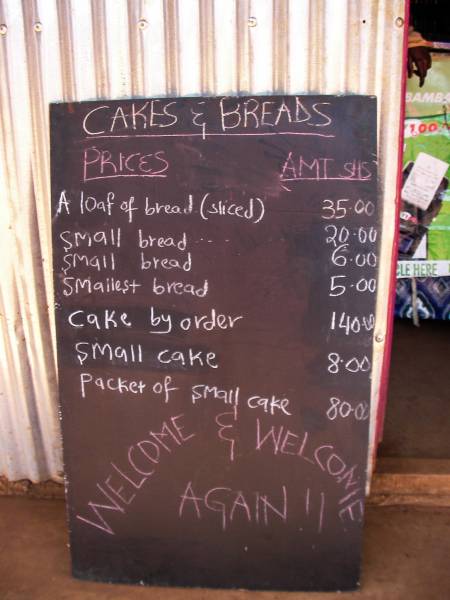 CAKES & BREADS
PRICES AMT SHS
A loaf of bread (sliced) 35.00
Small bread.... 20.00
Small bread 6.00
Smallest bread 5.00
Cake by order 140.00
Small cake 8.00
Packet of small cake 80.00
WELCOME & WELCOME
AGAIN !!
BAMB
100
CLE HERE